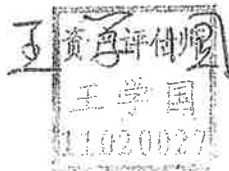 资产评估师
王学国
11020027